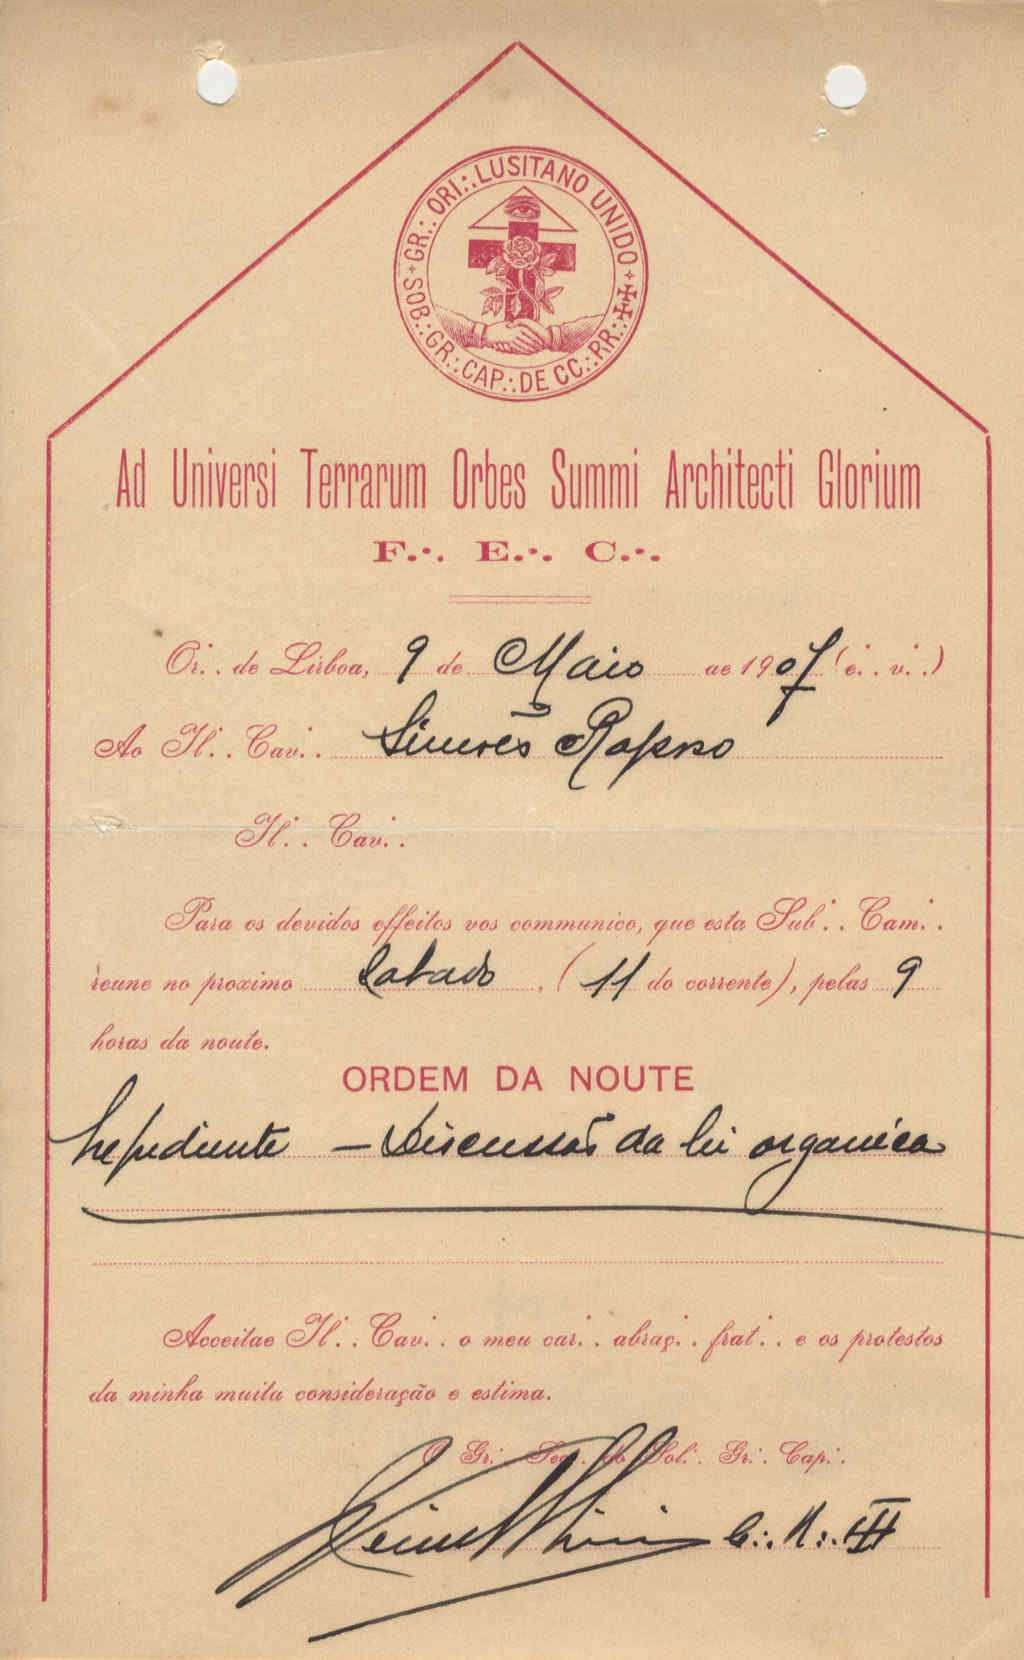 GR∴ ORI∴ LUSITANO UNIDO
SOB∴ GR∴ CAP∴ DE CC∴ RR∴
Ad Universi Terrarum Orbes Summi Architecti Glorium
F∴ E∴ C∴
Or∴ de Lisboa, 9 de Maio de 1907 (e∴ v∴)
Ao Il∴ Cav∴ Simões Raposo
Il∴ Cav∴
Para os devidos effeitos vos communico, que esta Sub∴ Cam∴
reune no proximo Sabado, (11 do corrente), pelas 9
horas da noute.
ORDEM DA NOUTE
Expediente — Discussão da lei organica
Acceitae Il∴ Cav∴ o meu car∴ abraç∴ frat∴ e os protestos
da minha muita consideração e estima.
O Gr∴ Sec∴ do Sob∴ Gr∴ Cap∴